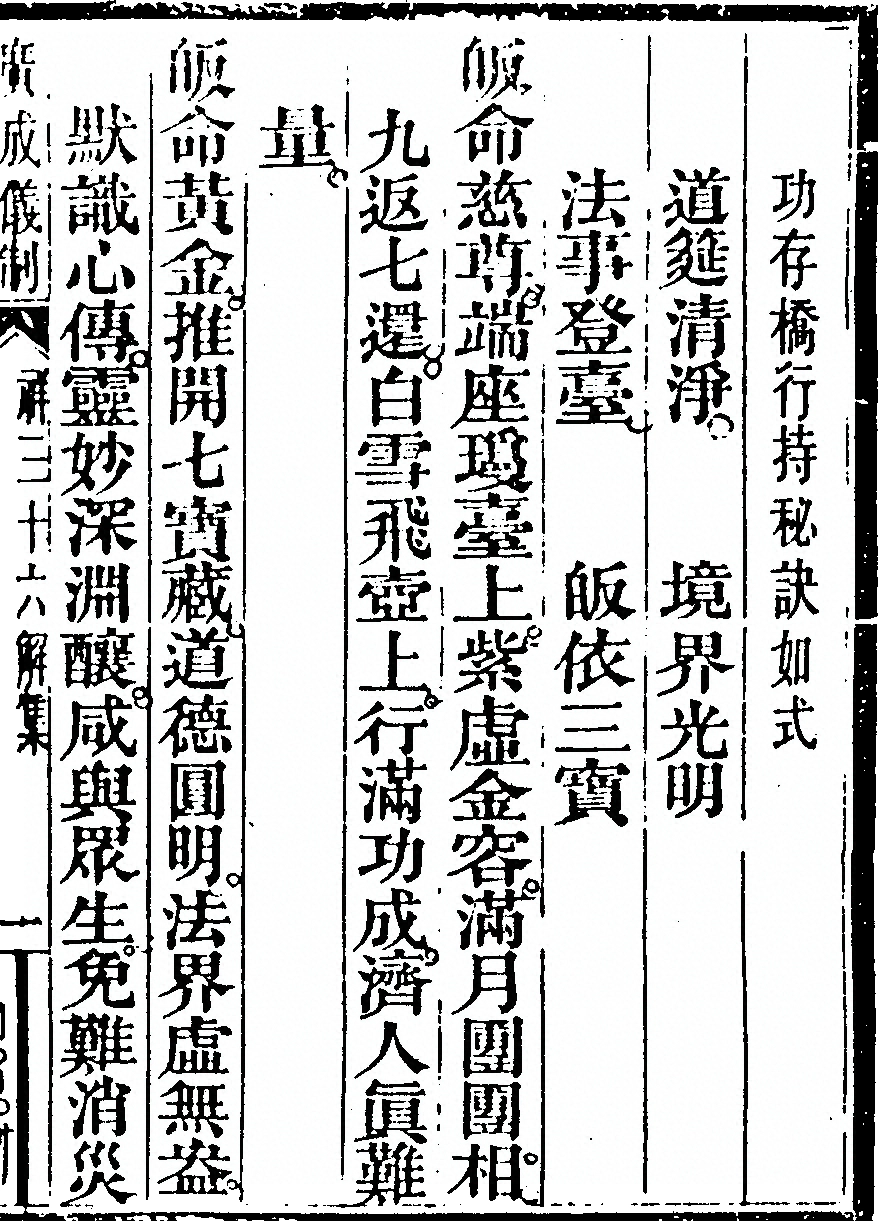 功存橋行持秘訣如式
道筵清淨。 境界光明
法事登臺。 皈依三寶
皈命慈尊。端座瓊臺上。紫虛金容。滿月團團相。
九返七還。白雪飛壺上。行滿功成。濟人眞難
量。
皈命黃金。推開七寶藏。道德圓明。法界虛無盎。
默識心傳。靈妙深淵釀。咸與眾生。免難消災
廣成儀制
解三十六解集
一